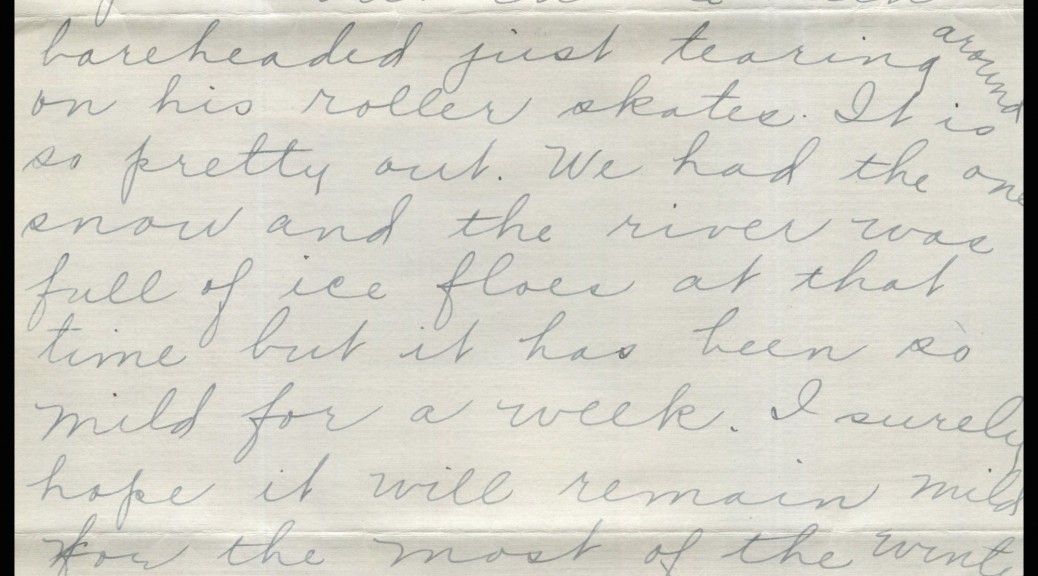 bareheaded just tearing around
on his roller skates. It is
so pretty out. We had the one
snow and the river was
full of ice floes at that
time but it has been so
mild for a week. I surely
hope it will remain mild
for the most of the